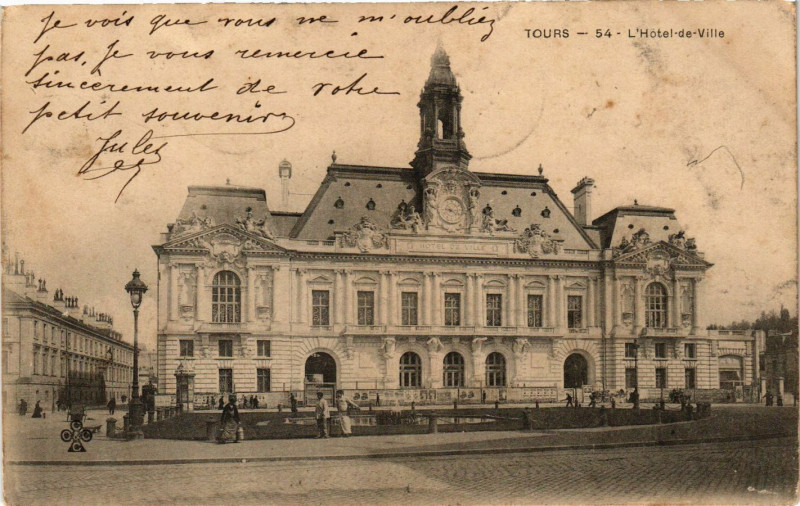 je vois que vous ne m'oubliez
pas, je vous remercie
sincèrement de votre
petit souvenir
Jules
TOURS — 54 - L'Hôtel-de-Ville
HÔTEL DE VILLE